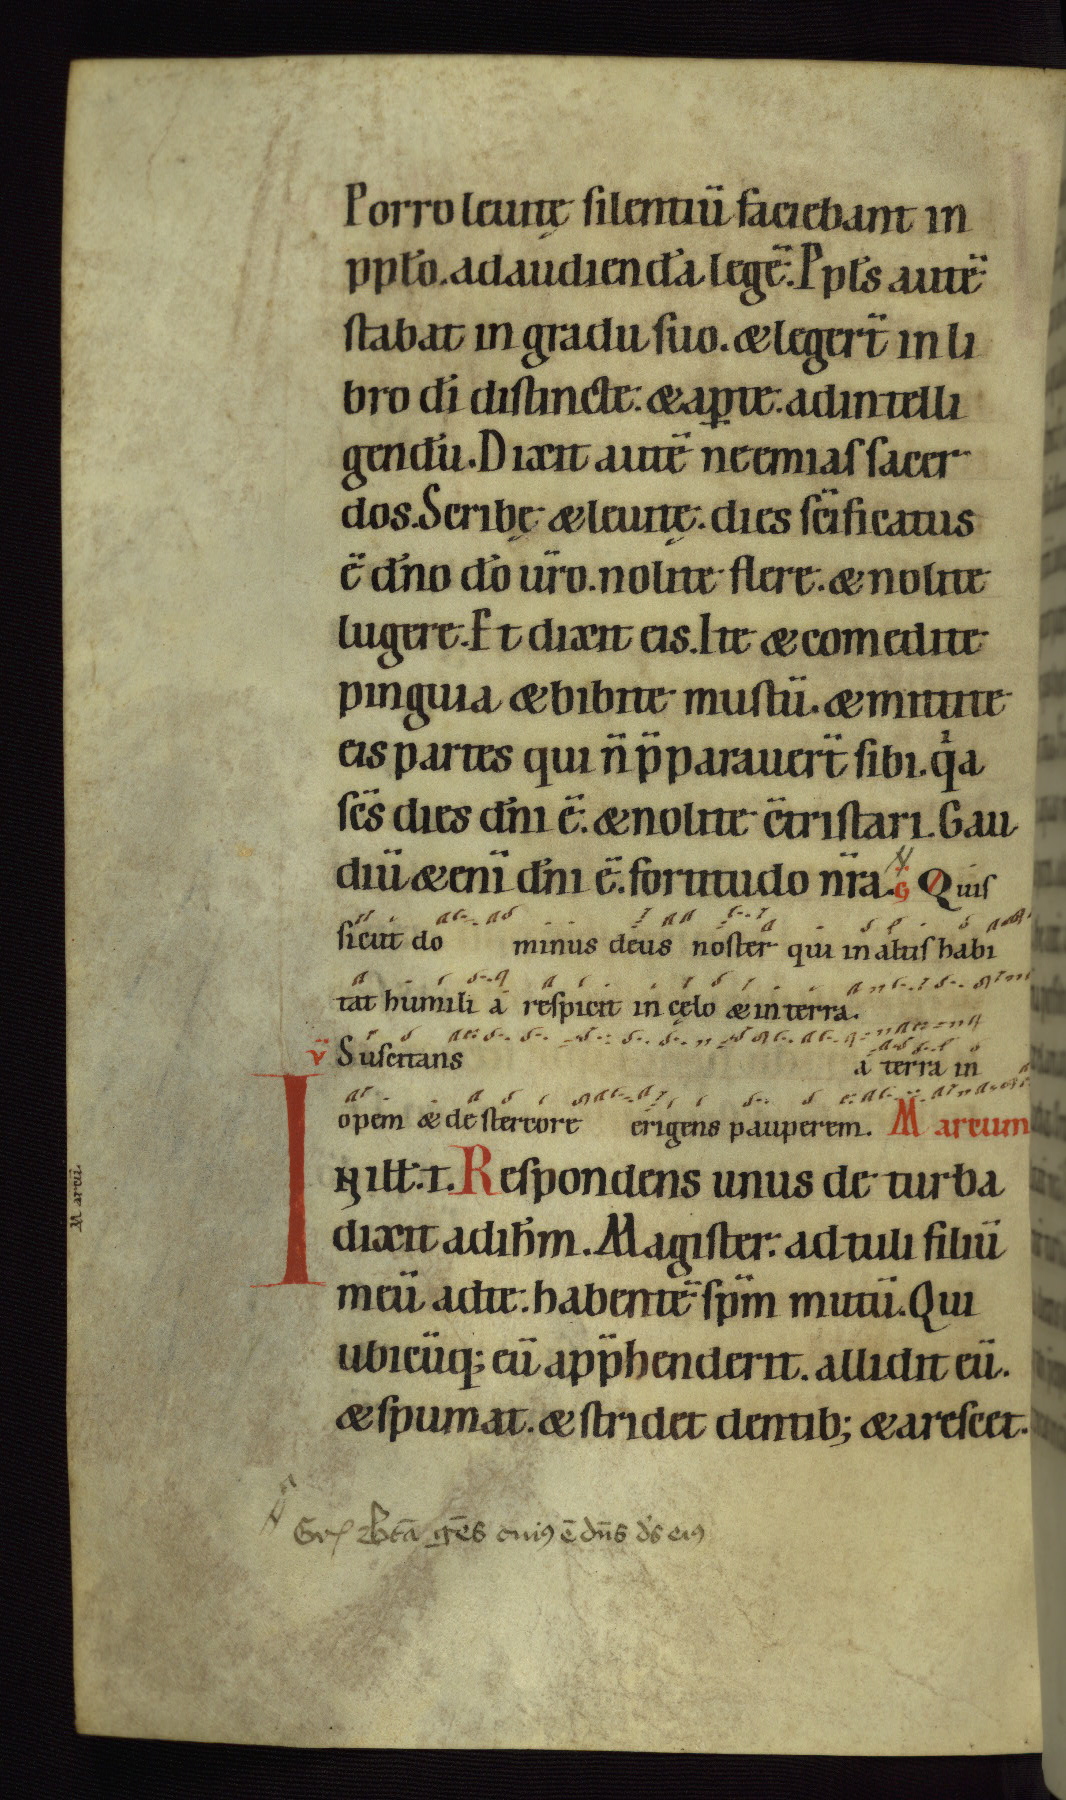 Porro leuitę silentiū faciebant in
pp̄lo. ad audiendā legē. Pp̄ls autē
stabat in gradu suo. & legerт̄ in li
bro dī distincte: & apte. ad intelli
gendū. Dixit autē neemias sacer
dos. Scribę & leuitę. dies sc̄ificatus
ē dn̄o dō ur̄o. nolite flere. & nolite
lugere. Et dixit eis. Ite & comedite
pinguia & bibite mustū. & mittite
eis partes qui n̄ p̄pparauert̄ sibi. qͥa
sc̄s dies dn̄i ē. & nolite c̄tristari. Gau
diū & eni dn̄i ē. fortitudo nr̄a. G Quis
sicut do minus deus noster qui in altis habi
tat humili a respicit in cęlo & in terra.
v̄ Suscitans a terra in
opem & de stercore erigens pauperem. Marcum
In illt. t. Respondens unus de turba
dixit ad ih̄m. Magister: adtuli filiū
meū ad te: habentē sp̄m mutū. Qui
ubicūq; eū app̄henderit. allidit eū.
& spumat. & stridet dentib; & arescet.
Marcū
Gr̄ Bt̄a gēs cuiꝰ ē dn̄s dꝰs eiꝰ